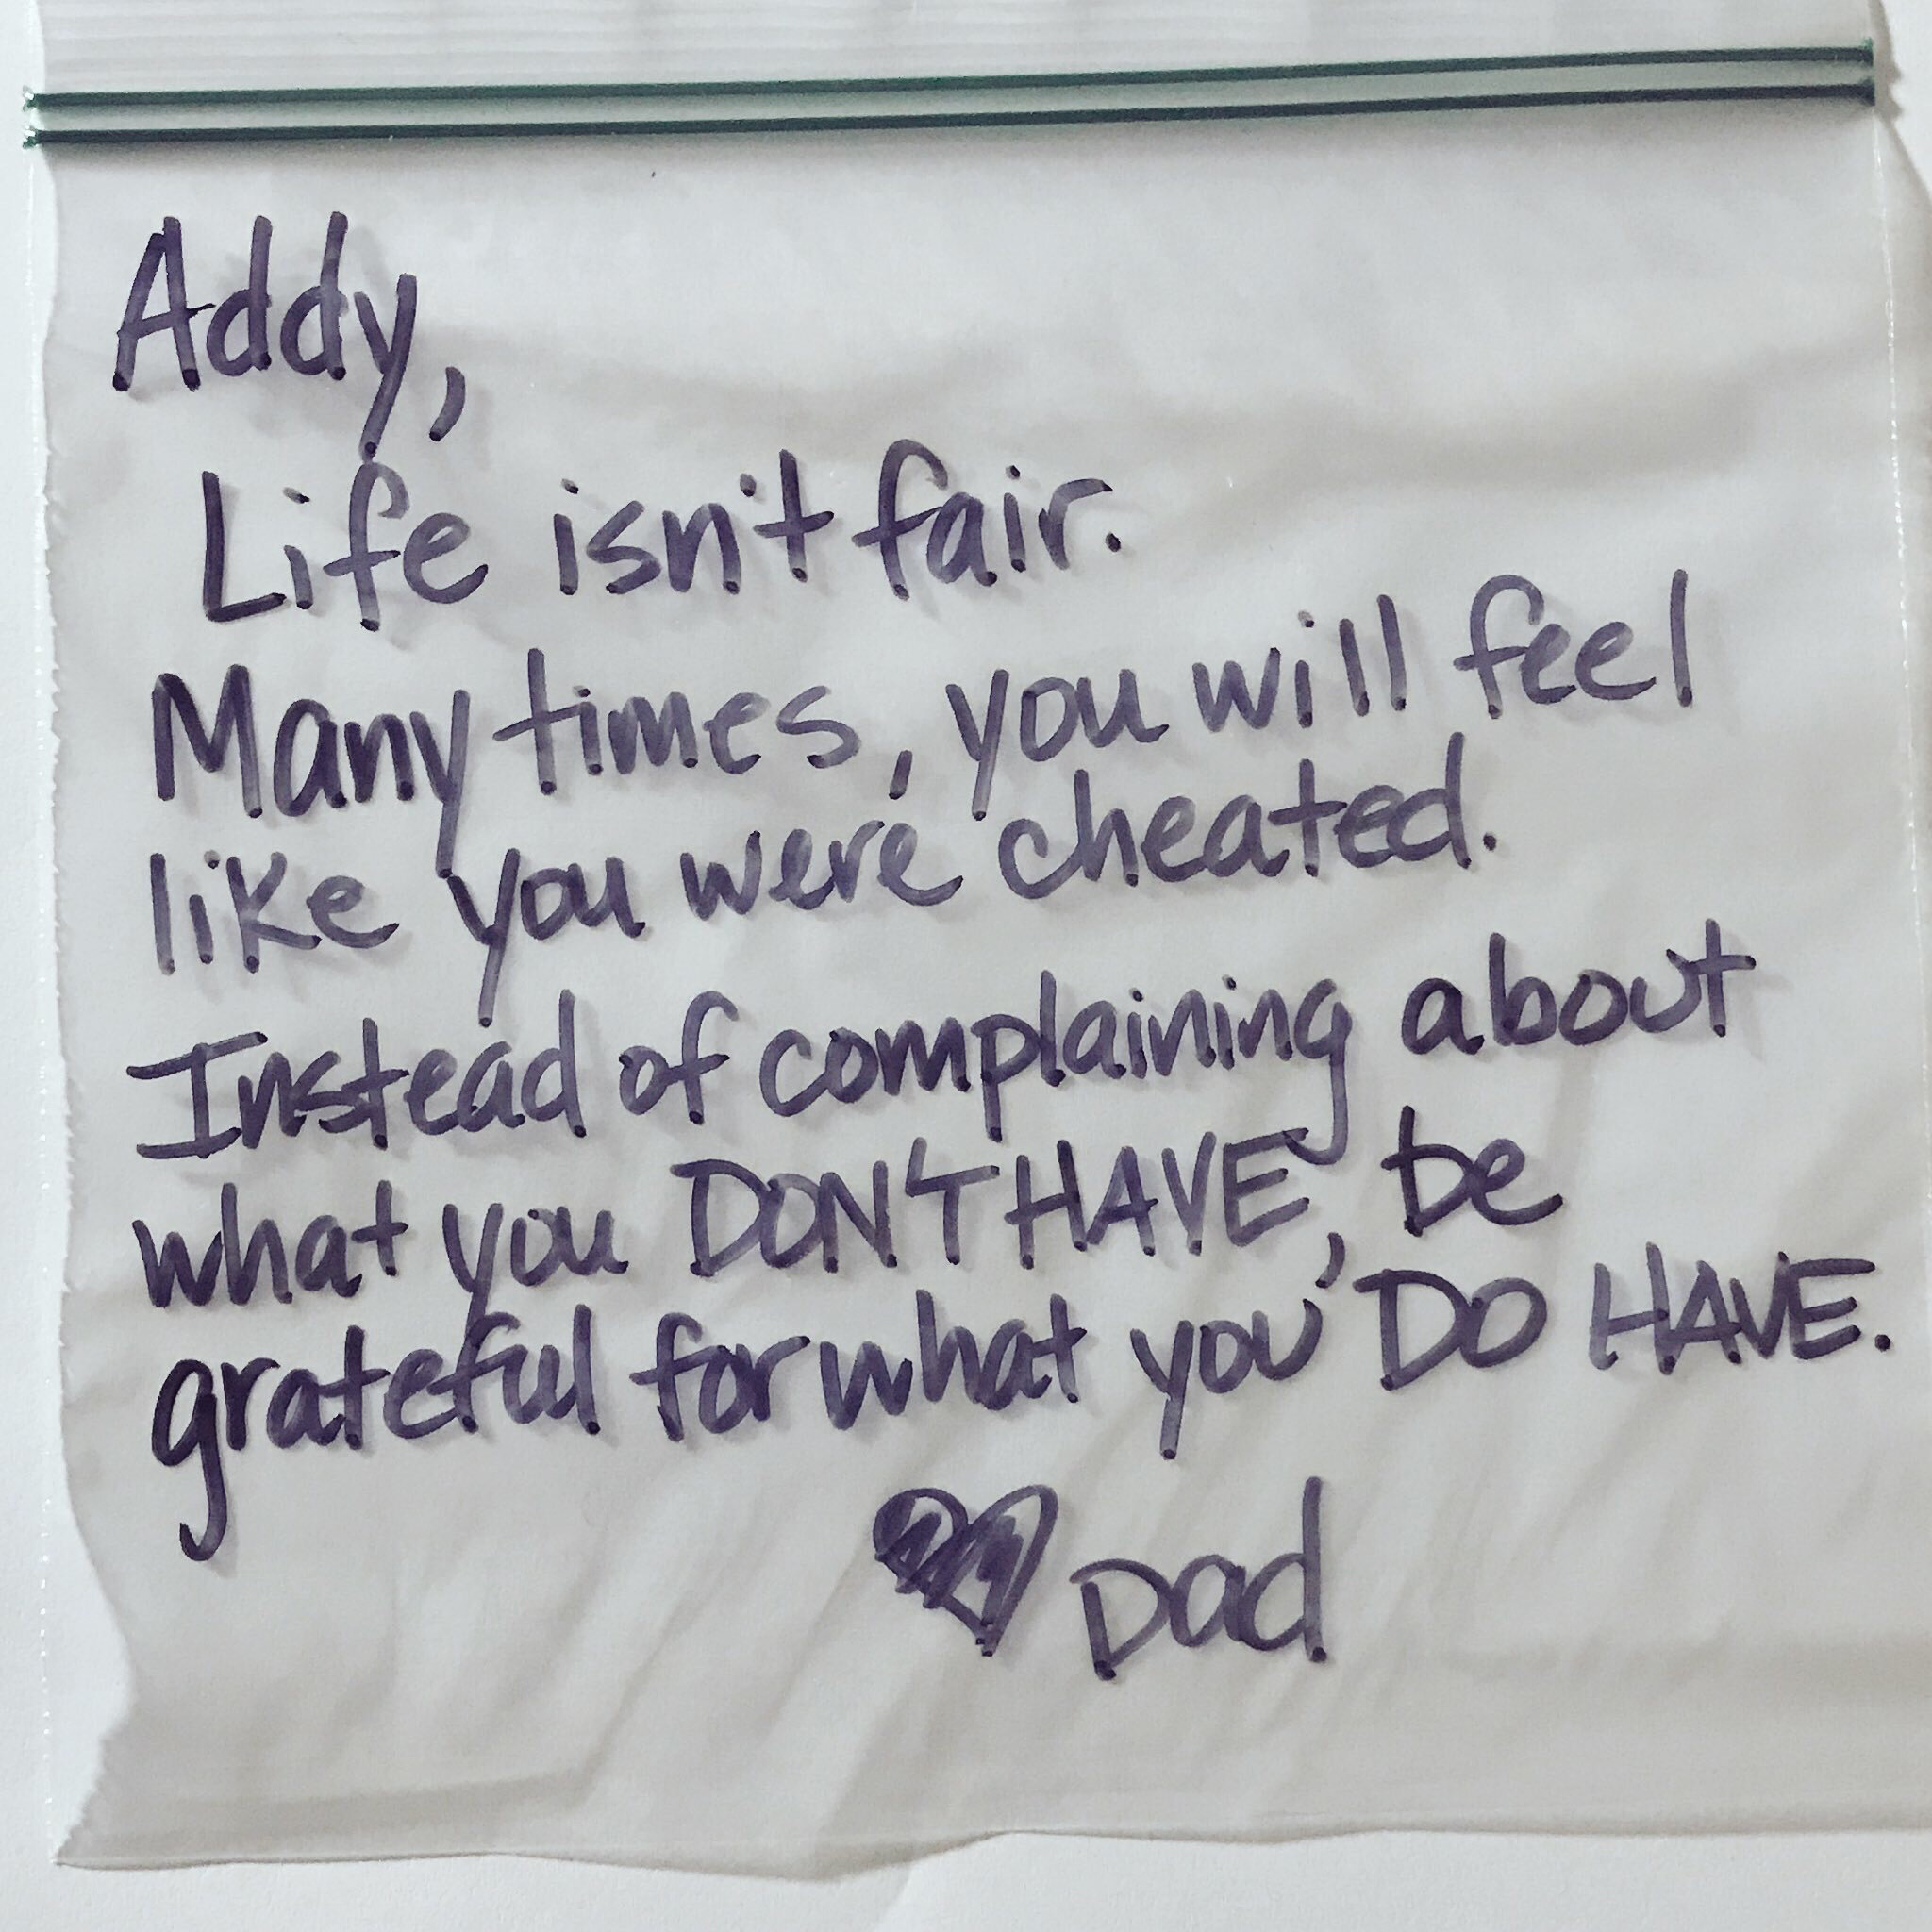 Addy,
Life isn't fair.
Many times, you will feel
like you were cheated.
Instead of complaining about
what you DON'T HAVE, be
grateful for what you DO HAVE.
♥ Dad